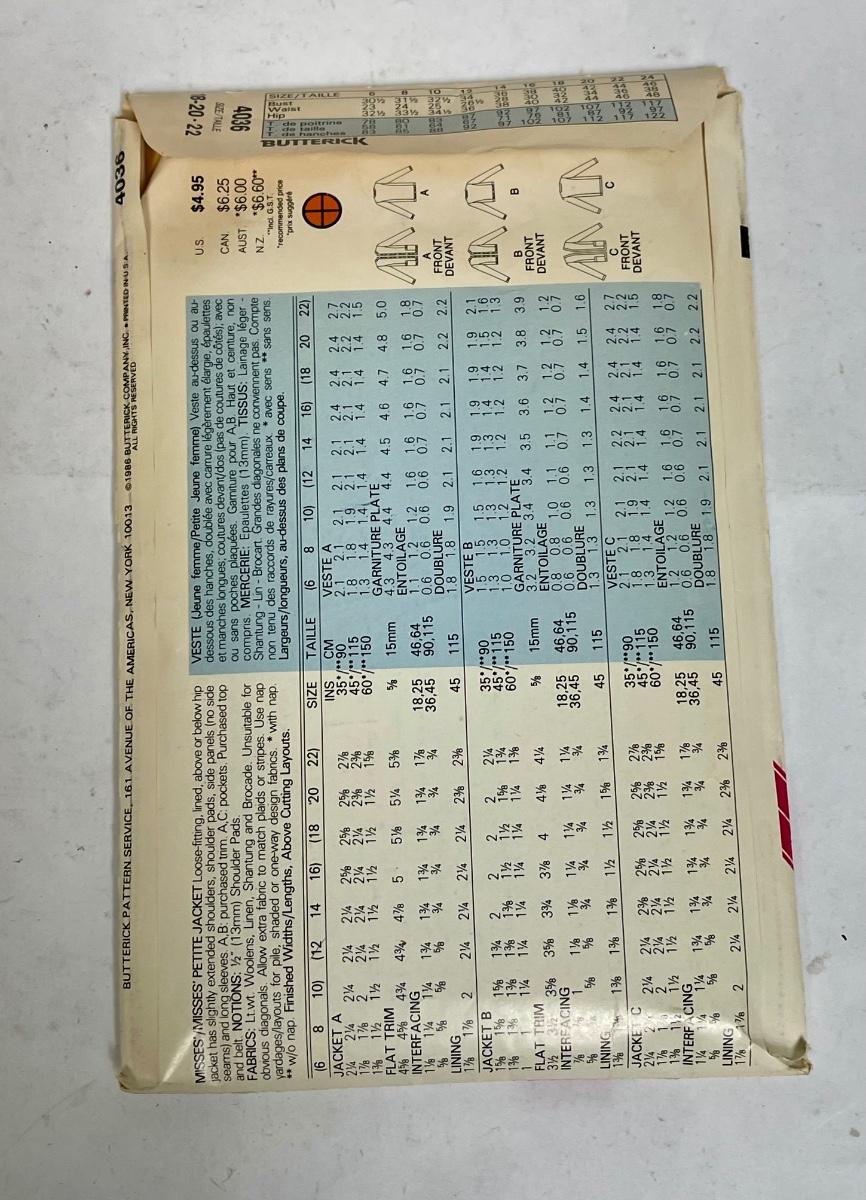 BUTTERICK PATTERN SERVICE, 161 AVENUE OF THE AMERICAS, NEW YORK 10013 ©1986 BUTTERICK COMPANY, INC. • PRINTED IN U.S.A.
ALL RIGHTS RESERVED
4036
MISSES'/MISSES' PETITE JACKET Loose-fitting, lined, above or below hip
jacket has slightly extended shoulders, shoulder pads, side panels (no side
seams) and long sleeves. A,B: purchased trim. A,C: pockets. Purchased top
and belt. NOTIONS: ½" (13mm) Shoulder Pads.
FABRICS: Lt.wt. Woolens, Linen, Shantung and Brocade. Unsuitable for
obvious diagonals. Allow extra fabric to match plaids or stripes. Use nap
yardages/layouts for pile, shaded or one-way design fabrics. * with nap.
** w/o nap. Finished Widths/Lengths, Above Cutting Layouts.
VESTE (Jeune femme/Petite Jeune femme) Veste au-dessus ou au-
dessous des hanches, doublée avec carrure légèrement élargie, épaulettes
et manches longues; coutures devant/dos (pas de coutures de côtés); avec
ou sans poches plaquées. Garniture pour A,B. Haut et ceinture, non
compris. MERCERIE: Epaulettes (13mm). TISSUS: Lainage léger -
Shantung - Lin - Brocart. Grandes diagonales ne conviennent pas. Compte
non tenu des raccords de rayures/carreaux. * avec sens ** sans sens.
Largeurs/longueurs, au-dessus des plans de coupe.
(6 8 10) (12 14 16) (18 20 22) SIZE TAILLE (6 8 10) (12 14 16) (18 20 22)
JACKET A INS CM VESTE A
2¼ 2¼ 2¼ 2¼ 2¼ 2⅝ 2⅝ 2⅝ 2⅞ 35*/**90 2.1 2.1 2.1 2.1 2.1 2.4 2.4 2.4 2.7
1⅞ 1⅞ 2 2¼ 2¼ 2¼ 2¼ 2⅜ 2⅜ 45*/**115 1.8 1.8 1.9 2.1 2.1 2.1 2.1 2.2 2.2
1⅜ 1½ 1½ 1½ 1½ 1½ 1½ 1½ 1⅝ 60*/**150 1.3 1.4 1.4 1.4 1.4 1.4 1.4 1.4 1.5
FLAT TRIM GARNITURE PLATE
4⅝ 4⅝ 4¾ 4¾ 4⅞ 5 5⅛ 5¼ 5⅜ ⅝ 15mm 4.3 4.3 4.4 4.4 4.5 4.6 4.7 4.8 5.0
INTERFACING ENTOILAGE
1⅛ 1¼ 1¼ 1¾ 1¾ 1¾ 1¾ 1¾ 1⅞ 18,25 46,64 1.1 1.2 1.2 1.6 1.6 1.6 1.6 1.6 1.8
⅝ ⅝ ⅝ ⅝ ¾ ¾ ¾ ¾ ¾ 36,45 90,115 0.6 0.6 0.6 0.6 0.7 0.7 0.7 0.7 0.7
LINING DOUBLURE
1⅞ 1⅞ 2 2¼ 2¼ 2¼ 2¼ 2⅜ 2⅜ 45 115 1.8 1.8 1.9 2.1 2.1 2.1 2.1 2.2 2.2
JACKET B VESTE B
1⅝ 1⅝ 1⅝ 1¾ 2 2 2 2 2¼ 35*/**90 1.5 1.5 1.5 1.6 1.9 1.9 1.9 1.9 2.1
1⅜ 1⅜ 1⅜ 1⅜ 1⅜ 1½ 1½ 1⅝ 1¾ 45*/**115 1.3 1.3 1.3 1.3 1.3 1.4 1.4 1.5 1.6
1 1 1¼ 1¼ 1¼ 1¼ 1¼ 1¼ 1⅜ 60*/**150 1.0 1.0 1.2 1.2 1.2 1.2 1.2 1.2 1.3
FLAT TRIM GARNITURE PLATE
3½ 3½ 3⅝ 3⅝ 3¾ 3⅞ 4 4⅛ 4¼ ⅝ 15mm 3.2 3.2 3.4 3.4 3.5 3.6 3.7 3.8 3.9
INTERFACING ENTOILAGE
⅞ 1 1⅛ 1⅛ 1¼ 1¼ 1¼ 1¼ 18,25 46,64 0.8 0.8 1.0 1.1 1.1 1.2 1.2 1.2 1.2
⅝ ⅝ ⅝ ¾ ¾ ¾ ¾ ¾ 36,45 90,115 0.6 0.6 0.6 0.6 0.7 0.7 0.7 0.7 0.7
LINING DOUBLURE
1⅜ 1⅜ 1⅜ 1⅜ 1½ 1½ 1⅝ 1¾ 45 115 1.3 1.3 1.3 1.3 1.3 1.4 1.4 1.5 1.6
JACKET C VESTE C
2¼ 2¼ 2¼ 2¼ 2⅜ 2⅝ 2⅝ 2⅝ 2⅞ 35*/**90 2.1 2.1 2.1 2.1 2.2 2.4 2.4 2.4 2.7
1⅞ 2 2¼ 2¼ 2¼ 2¼ 2⅜ 2⅜ 45*/**115 1.8 1.8 1.9 2.1 2.1 2.1 2.1 2.2 2.2
1⅜ 1½ 1½ 1½ 1½ 1½ 1½ 1½ 1⅝ 60*/**150 1.3 1.4 1.4 1.4 1.4 1.4 1.4 1.4 1.5
INTERFACING ENTOILAGE
1¼ 1¼ 1¼ 1¾ 1¾ 1¾ 1¾ 1¾ 1⅞ 18,25 46,64 1.2 1.2 1.2 1.6 1.6 1.6 1.6 1.6 1.8
⅝ ⅝ ⅝ ⅝ ¾ ¾ ¾ ¾ ¾ 36,45 90,115 0.6 0.6 0.6 0.6 0.7 0.7 0.7 0.7 0.7
LINING DOUBLURE
1⅞ 1⅞ 2 2¼ 2¼ 2¼ 2¼ 2⅜ 2⅜ 45 115 1.8 1.8 1.9 2.1 2.1 2.1 2.1 2.2 2.2
U.S. $4.95
CAN. $6.25
AUST. *$6.00
N.Z. *$6.60**
**incl. G.S.T.
*recommended price
*prix suggéré
A A
FRONT
DEVANT
B B
FRONT
DEVANT
C C
FRONT
DEVANT
8-20-22
SIZE/TAILLE
4036
BUTTERICK
SIZE/TAILLE 6 8 10 12 14 16 18 20 22 24
Bust 30½ 31½ 32½
Waist 23 24 25
Hip 32½ 33½ 34½
T. de poitrine
T. de taille
T. de hanches